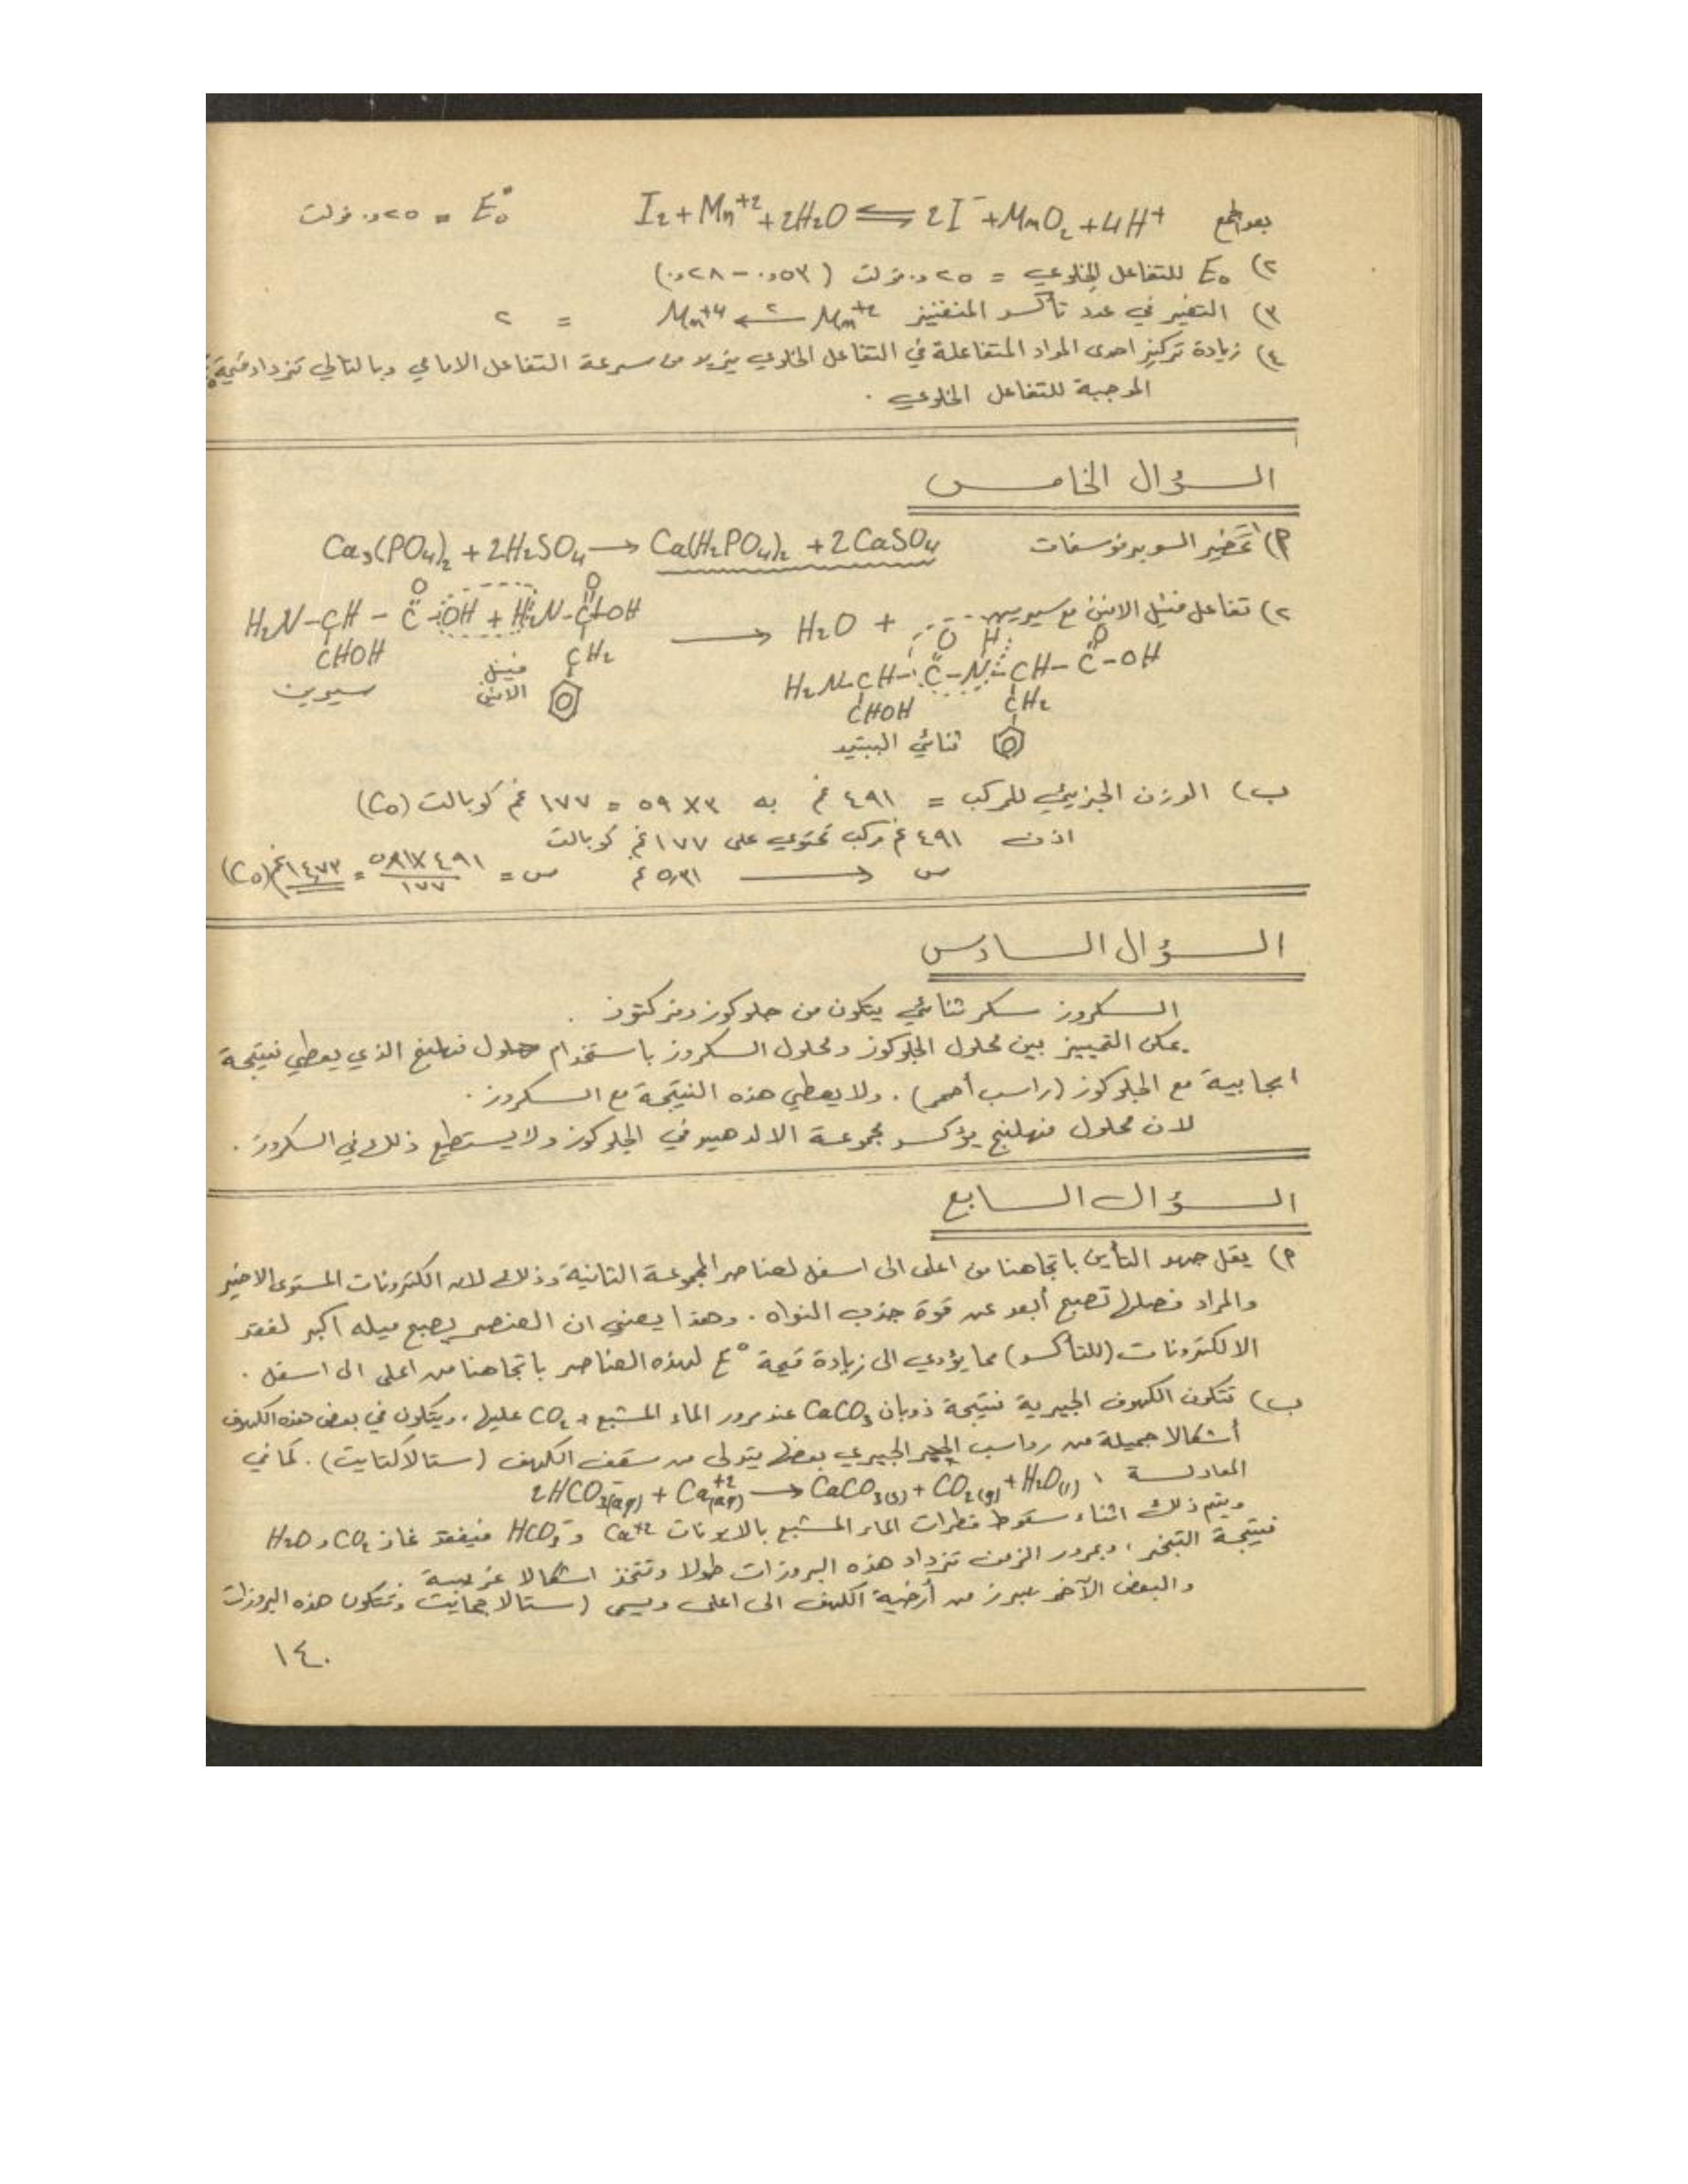 بعد الجمع I₂ + Mn⁺² + 2H₂O ⇌ 2I⁻ + MnO₂ + 4H⁺ E°₀ = ٢٥و. فولت
٢) E₀ للتفاعل الخلوي = ٢٥و. فولت (٥٣و. – ٢٨و.)
٣) التغير في عدد تأكسد المنغنيز Mn⁺² ⟵٢ Mn⁺⁴ = ٢
٤) زيادة تركيز احدى المواد المتفاعلة في التفاعل الخلوي يزيد من سرعة التفاعل الامامي وبالتالي تزداد قيمة
الموجبة للتفاعل الخلوي .
السؤال الخامس
٢) ١ تحضير السوبر فوسفات Ca₃(PO₄)₂ + 2H₂SO₄ → Ca(H₂PO₄)₂ + 2CaSO₄
٢) تفاعل فنيل الانين مع سيرين
H₂N–CH–C–OH + H₂N–C–OH → H₂O +
O O
CHOH CH₂
سيرين فنيل الانين
O H O
H₂N–CH–C–N–CH–C–OH
CHOH CH₂
ثنائي الببتيد
ب) الوزن الجزيئي للمركب = ٤٩١ غم به ٣×٥٩ = ١٧٧ غم كوبالت (Co)
اذن ٤٩١ غم مركب تحتوي على ١٧٧ غم كوبالت
س ⟶ ٥,٣١ غم س = ٤٩١×٥,٣١ / ١٧٧ = ١٤,٧٣ غم (Co)
السؤال السادس
السكروز سكر ثنائي يتكون من جلوكوز وفركتوز .
يمكن التمييز بين محلول الجلوكوز ومحلول السكروز باستخدام محلول فهلنغ الذي يعطي نتيجة
ايجابية مع الجلوكوز (راسب أحمر) . ولا يعطي هذه النتيجة مع السكروز .
لان محلول فهلنج يؤكسد مجموعة الالدهيد في الجلوكوز ولا يستطيع ذلك في السكروز .
السؤال السابع
٢) يقل جهد التأين باتجاهنا من اعلى الى اسفل لعناصر المجموعة الثانية وذلك لان الكترونات المستوى الاخير
والمراد فصلها تصبح أبعد عن قوة جذب النواه . وهذا يعني ان العنصر يصبح ميله اكبر لفقد
الالكترونات (للتأكسد) مما يؤدي الى زيادة قيمة E° لهذه العناصر باتجاهنا من اعلى الى اسفل .
ب) تتكون الكهوف الجيرية نتيجة ذوبان CaCO₃ عند مرور الماء المشبع بـ CO₂ عليها ، ويتكون في بعض هذه الكهوف
أشكالا جميلة من رواسب الحجر الجيري بعضها يتدلى من سقف الكهف (ستالاكتايت) . كما في
المعادلة : 2HCO₃⁻(aq) + Ca⁺²(aq) → CaCO₃(s) + CO₂(g) + H₂O(l)
ويتم ذلك اثناء سقوط قطرات الماء المشبع بالايونات Ca⁺² و HCO₃⁻ فيفقد غاز CO₂ و H₂O
نتيجة التبخر ، وبمرور الزمن تزداد هذه البروزات طولا وتتخذ اشكالا غريبة
والبعض الآخر يبرز من أرضية الكهف الى اعلى ويسمى (ستالاجمايت وتتكون هذه البروزات
١٤٠